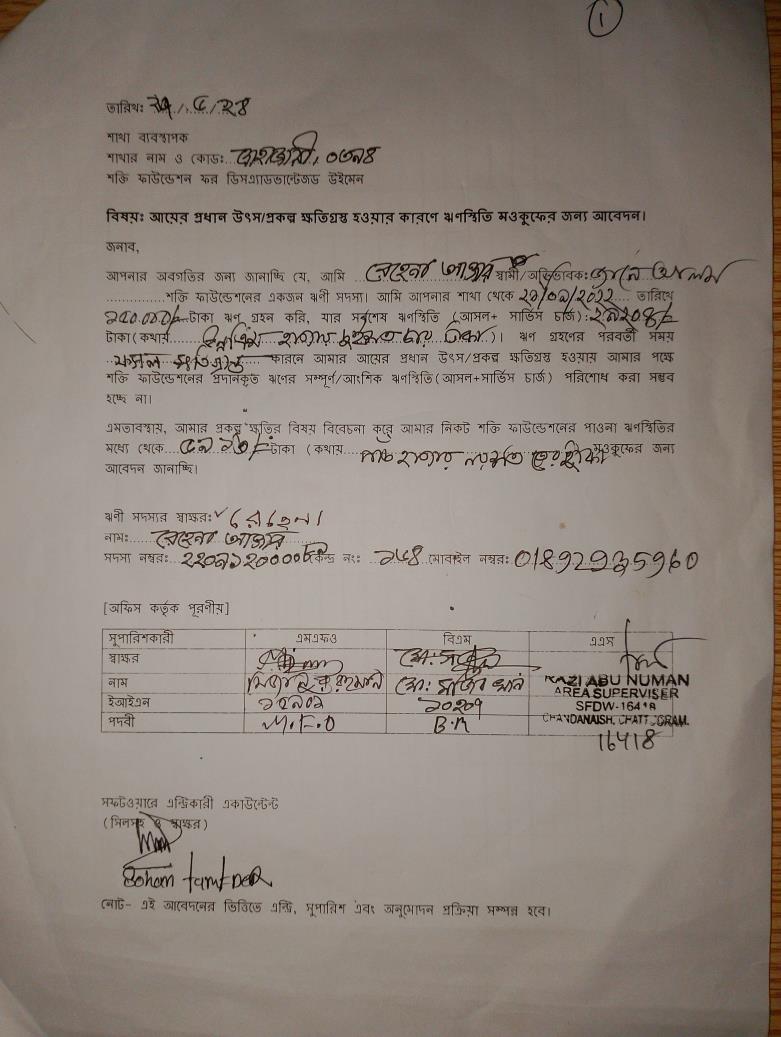 ১
তারিখ: ২৭/৫/২৪
শাখা ব্যবস্থাপক
শাখার নাম ও কোড:
শক্তি ফাউন্ডেশন ফর ডিসএ্যাডভান্টেজড উইমেন
বিষয়: আয়ের প্রধান উৎস/প্রকল্প ক্ষতিগ্রস্থ হওয়ার কারণে ঋণস্থিতি মওকুফের জন্য আবেদন।
জনাব,
আপনার অবগতির জন্য জানাচ্ছি যে, আমি রেহেনা আক্তার স্বামী/অভিভাবক: জানে আলম
শক্তি ফাউন্ডেশনের একজন ঋণী সদস্য। আমি আপনার শাখা থেকে ২১/০৯/২০২২ তারিখে
টাকা ঋণ গ্রহন করি, যার সর্বশেষ ঋণস্থিতি (আসল+ সার্ভিস চার্জ): ২৯২০৪/=
টাকা(কথায় উনত্রিশ হাজার দুইশত চার টাকা)। ঋণ গ্রহণের পরবর্তী সময়
ফসল ক্ষতিগ্রস্থ কারনে আমার আয়ের প্রধান উৎস/প্রকল্প ক্ষতিগ্রস্থ হওয়ায় আমার পক্ষে
শক্তি ফাউন্ডেশনের প্রদানকৃত ঋণের সম্পূর্ণ/আংশিক ঋণস্থিতি(আসল+সার্ভিস চার্জ) পরিশোধ করা সম্ভব
হচ্ছে না।
এমতাবস্থায়, আমার প্রকল্প ক্ষতির বিষয় বিবেচনা করে আমার নিকট শক্তি ফাউন্ডেশনের পাওনা ঋণস্থিতির
মধ্যে থেকে ৫৯১৩/= টাকা (কথায় পাঁচ হাজার নয়শত তের টাকা মওকুফের জন্য
আবেদন জানাচ্ছি।
ঋণী সদস্যর স্বাক্ষর: রেহেনা
নাম: রেহেনা আক্তার
সদস্য নম্বর: কেন্দ্র নং: ১৬৪ মোবাইল নম্বর: 01892935960
[অফিস কর্তৃক পূরণীয়]
সুপারিশকারী এমএফও বিএম এএস
স্বাক্ষর
নাম মিজানুর রহমান মো: সাজিব খান KAZI ABU NUMAN
AREA SUPERVISER
ইআইএন ১২৯০১ ১০২০৭ SFDW-16418
পদবী M.F.O B.M CHANDANAISH, CHATTOGRAM.
16418
সফটওয়ারে এন্ট্রিকারী একাউন্টেন্ট
(সিলসহ ও স্বাক্ষর)
নোট- এই আবেদনের ভিত্তিতে এন্ট্রি, সুপারিশ এবং অনুমোদন প্রক্রিয়া সম্পন্ন হবে।